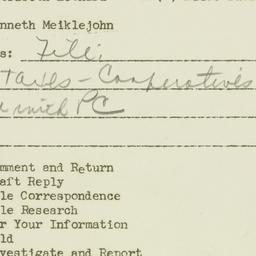 nneth Meiklejohn
s: File:
Taxes - Cooperatives
PC
mment and Return
aft Reply
le Correspondence
le Research
r Your Information
ld
vestigate and Report